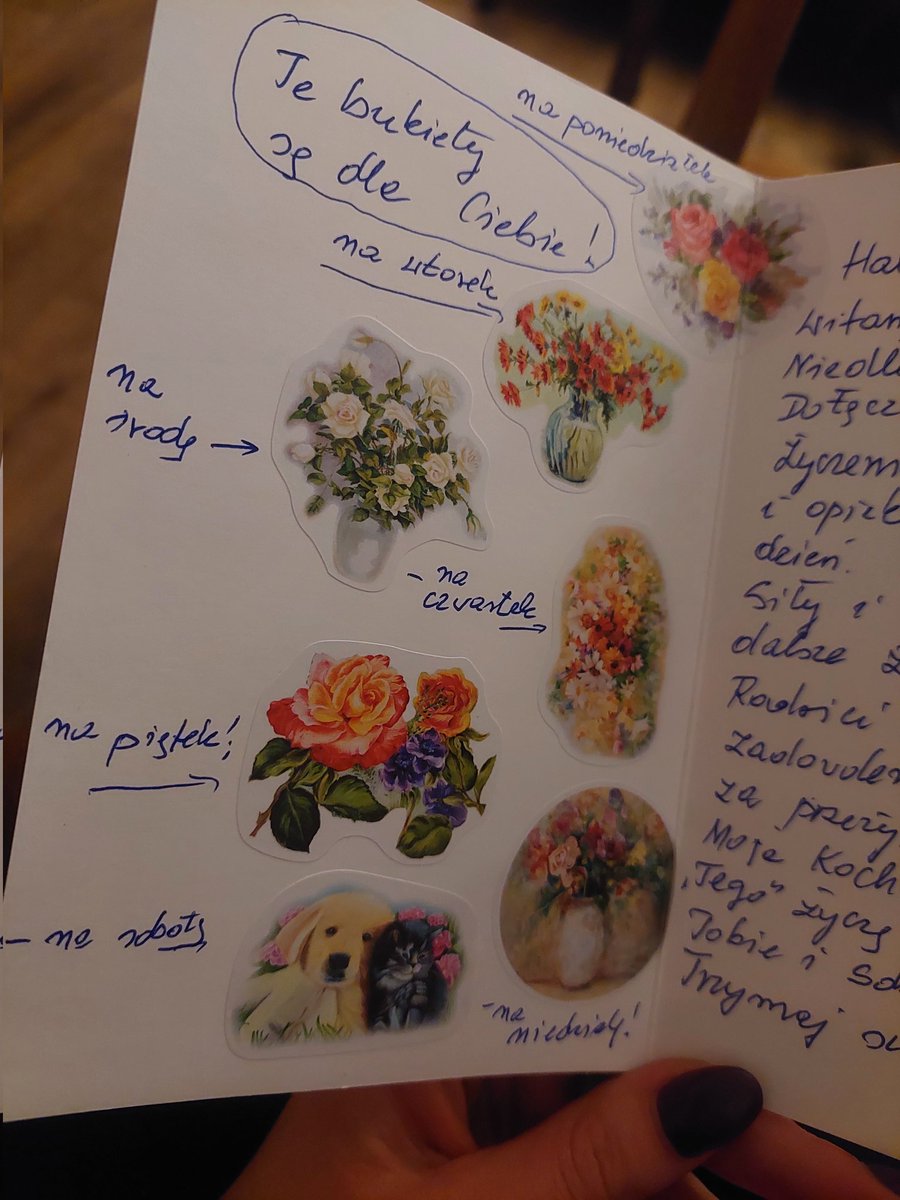 Te bukiety
są dla Ciebie!
na poniedziałek
na wtorek
na
środę
- na
czwartek
na piątek!
- na sobotę
- na
niedzielę!
Hal
witam
Niedł
Dołącz
życzen
i opiek
dzień.
Siły i
dalsze ż
Radości
zadowolen
za przeży
Moje Koch
„Tego" życzę
Tobie i
Trzymaj